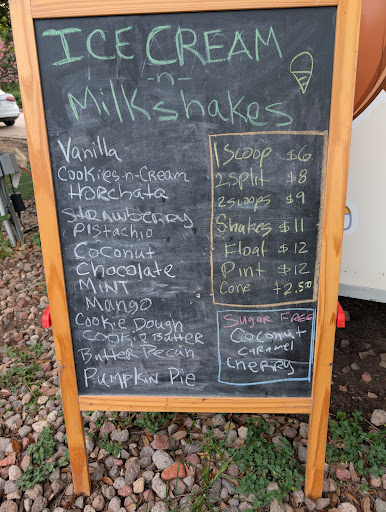 ICE CREAM
-n-
Milkshakes
Vanilla
Cookies-n-Cream
Horchata
Strawberry
Pistachio
Coconut
Chocolate
MINT
Mango
Cookie Dough
Cookie Butter
Butter Pecan
Pumpkin Pie
1 Scoop $6
2 Split $8
2 Scoops $9
Shakes $11
Float $12
Pint $12
Cone +2.50
Sugar Free
Coconut
Caramel
Cherry